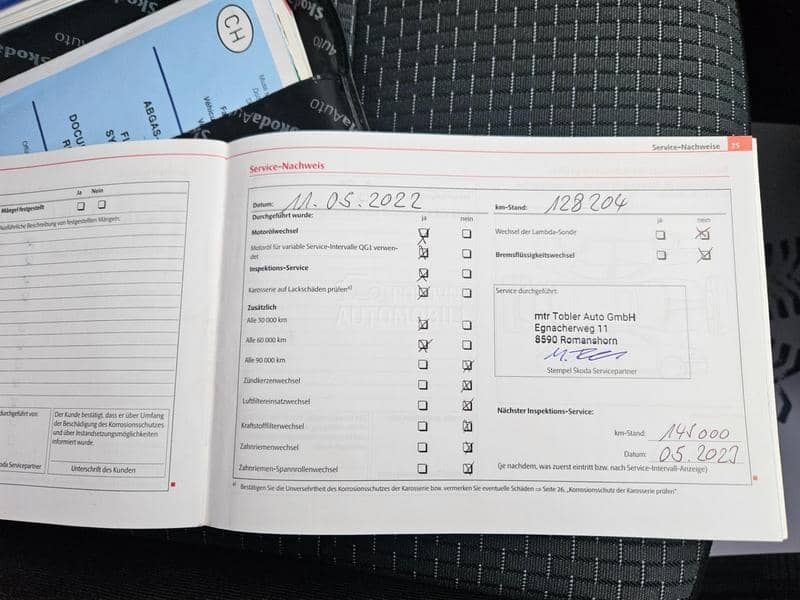 Skoda
CH
DOCU
ABGAS-
Service-Nachweise 25
Service-Nachweis
Datum: 11.05.2022
km-Stand: 128204
Durchgeführt wurde: ja nein
ja nein
Motorölwechsel
Wechsel der Lambda-Sonde
Motoröl für variable Service-Intervalle QG1 verwen-
det
Bremsflüssigkeitswechsel
Inspektions-Service
Karosserie auf Lackschäden prüfen a)
Service durchgeführt:
Zusätzlich
Alle 30 000 km
Alle 60 000 km
Alle 90 000 km
mtr Tobler Auto GmbH
Egnacherweg 11
8590 Romanshorn
Stempel Skoda Servicepartner
Zündkerzenwechsel
Luftfiltereinsatzwechsel
Kraftstofffilterwechsel
Zahnriemenwechsel
Zahnriemen-Spannrollenwechsel
Nächster Inspektions-Service:
km-Stand: 145000
Datum: 05.2023
(je nachdem, was zuerst eintritt bzw. nach Service-Intervall-Anzeige)
a) Bestätigen Sie die Unversehrtheit des Korrosionsschutzes der Karosserie bzw. vermerken Sie eventuelle Schäden ⇒ Seite 26, „Korrosionsschutz der Karosserie prüfen“.
Ja Nein
Mängel festgestellt
Ausführliche Beschreibung von festgestellten Mängeln:
durchgeführt von:
Der Kunde bestätigt, dass er über Umfang
der Beschädigung des Korrosionsschutzes
und über Instandsetzungsmöglichkeiten
informiert wurde.
Skoda Servicepartner
Unterschrift des Kunden